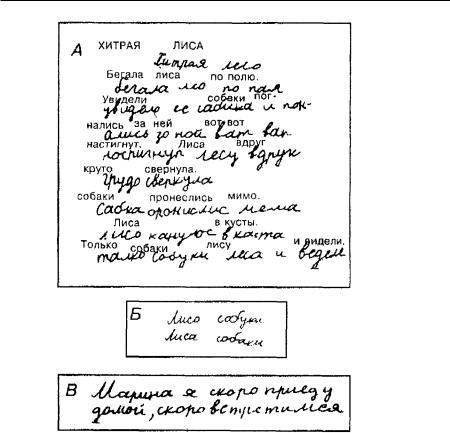 А ХИТРАЯ ЛИСА
Хитрая лесо
Бегала лиса по полю.
бегала лсо по пам
Увидели собаки пог-
увидело ее сабика и пон-
нались за ней вот вот
ались зо ной ват ват
настигнут. Лиса вдруг
лосшигнуп лесу вдрук
круто свернула.
грудо сверкула
собаки пронеслись мимо.
Сабка оронислис мема
Лиса в кусты.
лисо кануос в каста
Только собаки лису и видели.
талко собуки леса и ведем
Б Лисо собуки
Лиса собаки
В Марина я скоро приеду
домой, скоро встретимся